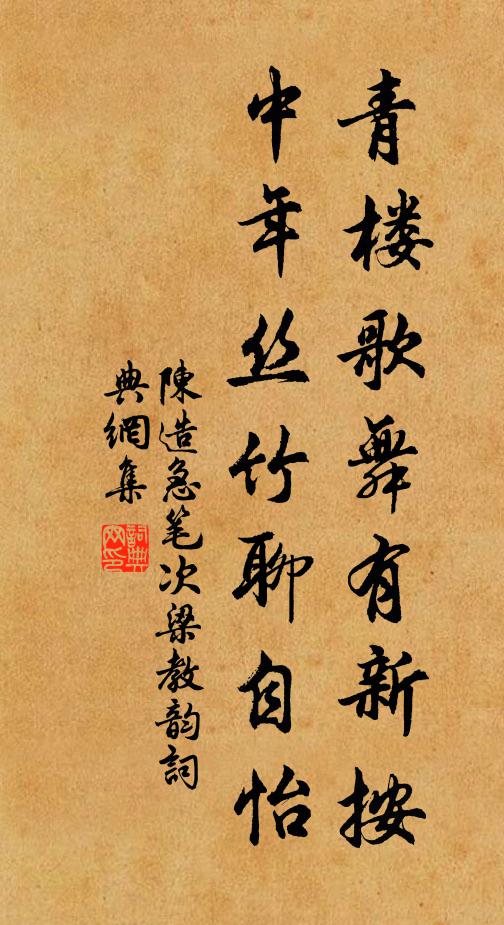 青楼歌舞有新按
中年丝竹聊自怡
陳造急笔次梁教韵詞
典網集
詞典
网印